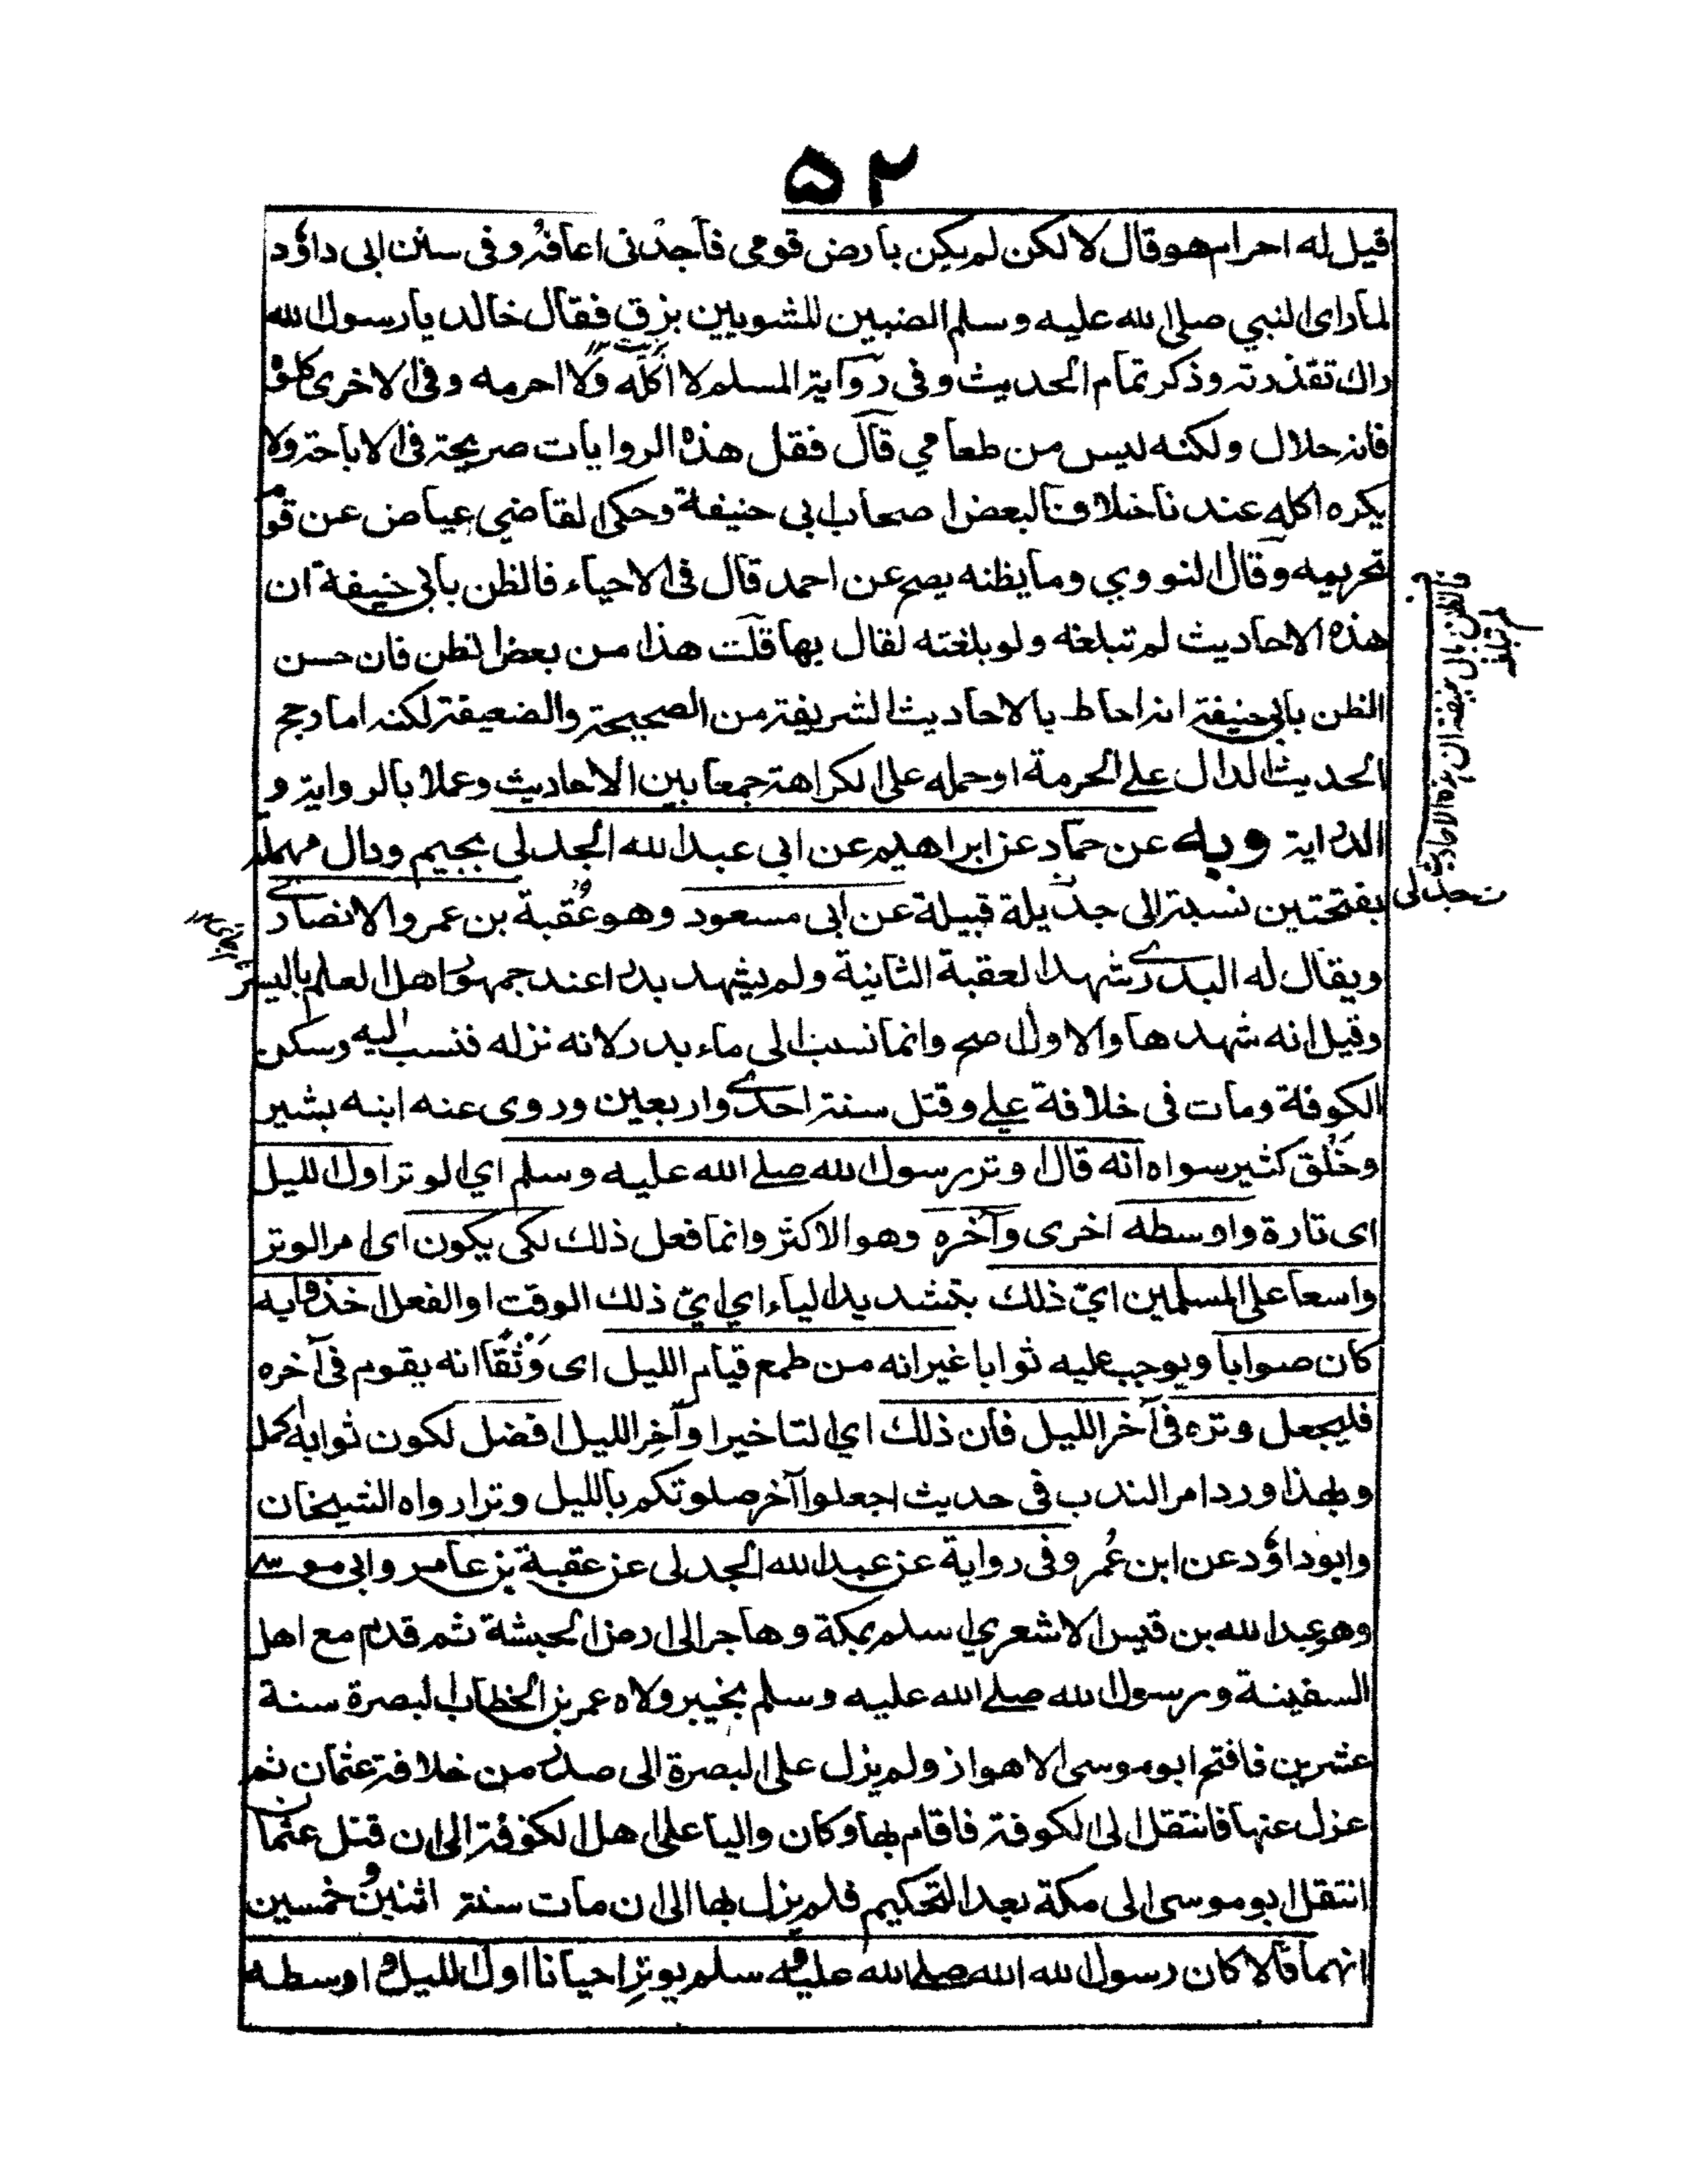 ۵۲
قيل له احرام هو قال لا لكن لم يكن بارض قومي فاجدنى اعافه وفى سنن ابى داؤد
لما راى النبي صلى الله عليه وسلم الضبين المشويين بزق فقال خالد يا رسول الله
راك تقذرته وذكر تمام الحديث وفى رواية المسلم لا اكله ولا احرمه وفى الاخرى كلوا
فانه حلال ولكنه ليس من طعامي قال فقل هذه الروايات صريحة فى الاباحة ولا
يكره اكله عندنا خلافا لبعض اصحاب ابى حنيفة وحكى القاضي عياض عن قوم
تحريمه وقال النووي وما يظنه يصح عن احمد قال فى الاحياء فالظن بابى حنيفة ان
هذه الاحاديث لم تبلغه ولو بلغته لقال بها قلت هذا من بعض الظن فان حسن
الظن بابى حنيفة انه احاط بالاحاديث الشريفة من الصحيحة والضعيفة لكنه اما رجح
الحديث الدال على الحرمة او حمله على الكراهة جمعا بين الاحاديث وعملا بالرواية و
الدراية وبه عن حماد عن ابراهيم عن ابي عبد الله الجدلى بجيم ودال مهملة
بفتحتين نسبة الى جديلة قبيلة عن ابى مسعود وهو عُقبة بن عمرو الانصارى
ويقال له البدرى شهد العقبة الثانية ولم يشهد بدرا عند جمهور اهل العلم بالسير
وقيل انه شهدها والاول اصح وانما نسب الى ماء بدر لانه نزله فنسب اليه وسكن
الكوفة ومات فى خلافة على وقتل سنة احدى واربعين وروى عنه ابنه بشير
وخَلق كثير سواه انه قال اوتر رسول الله صلى الله عليه وسلم اي الوتر اول الليل
اى تارة واوسطه اخرى وآخره وهو الاكثر وانما فعل ذلك لكى يكون اى امر الوتر
واسعا على المسلمين ايّ ذلك بتشديد الياء اي ايّ ذلك الوقت او الفعل اخذوا به
كان صوابا ويوجب عليه ثوابا غير انه من طمع قيام الليل اى وَثُقًا انه يقوم فى آخره
فليجعل وتره فى آخر الليل فان ذلك اي التاخير او آخر الليل افضل لكون ثوابه اكمل
ولهذا ورد امر الندب فى حديث اجعلوا آخر صلوتكم بالليل وترا رواه الشيخان
وابو داؤد عن ابن عُمر وفى رواية عن عبد الله الجدلى عن عقبة بن عامر وابى موسى
وهو عبد الله بن قيس الاشعري اسلم بمكة وهاجر الى ارض الحبشة ثم قدم مع اهل
السفينة ورسول الله صلى الله عليه وسلم بخيبر ولاه عمر بن الخطاب البصرة سنة
عشرين فافتح ابو موسى الاهواز ولم يزل على البصرة الى صدر من خلافة عثمان ثم
عزل عنها فانتقل الى الكوفة فاقام بها وكان واليا على اهل الكوفة الى ان قتل عثمان
انتقل ابو موسى الى مكة بعد التحكيم فلم يزل بها الى ان مات سنة اثنين وخمسين
انهما قالا كان رسول الله الله صلى الله عليه وسلم يوتر احيانا اول الليل واوسطه
فالظن بابى حنيفة ان هذه الاحاديث
لم تبلغه
ن جدلى